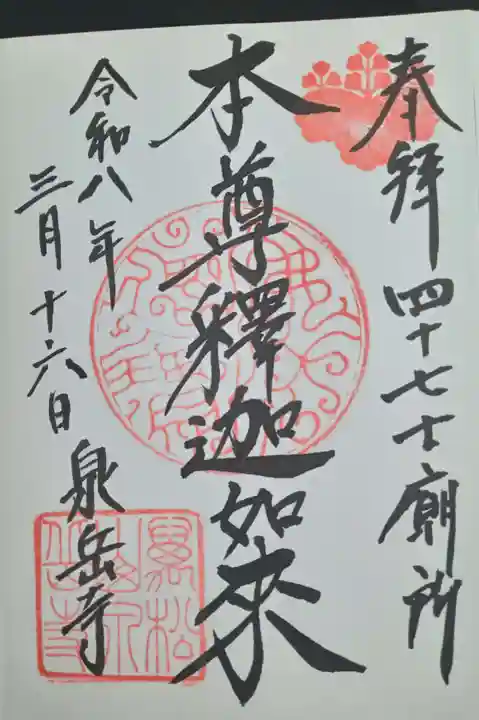 奉拝 四十七士廟所
本尊釋迦如来
令和八年
三月十六日
泉岳寺
萬松山泉岳寺